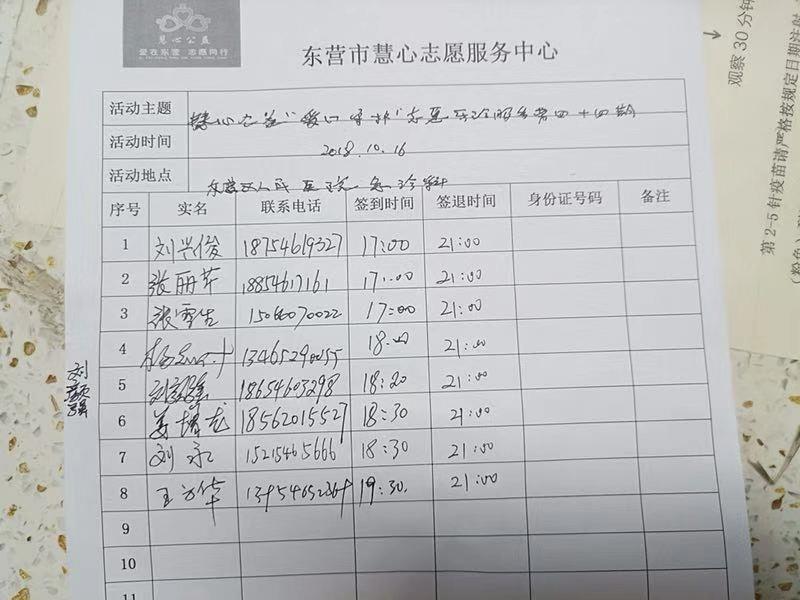 慧心公益
爱在东营 志愿同行
东营市慧心志愿服务中心
活动主题 慧心公益"暖心守护"志愿医诊服务第四十四期
活动时间 2018.10.16
活动地点 东营区人民医院 急诊科
序号 实名 联系电话 签到时间 签退时间 身份证号码 备注
1 刘兴俊 18754619327 17:00 21:00
2 张丽华 18854617161 17:00 21:00
3 张雪生 15066070022 17:00 21:00
4 18:00 21:00
5 18654603298 18:20 21:00
刘颜强
6 姜增龙 18562015527 18:30 21:00
7 刘永 15215465666 18:30 21:00
8 王 华 19:30 21:00
9
10
11
观察30分钟
第2-5针疫苗请严格按规定日期注射